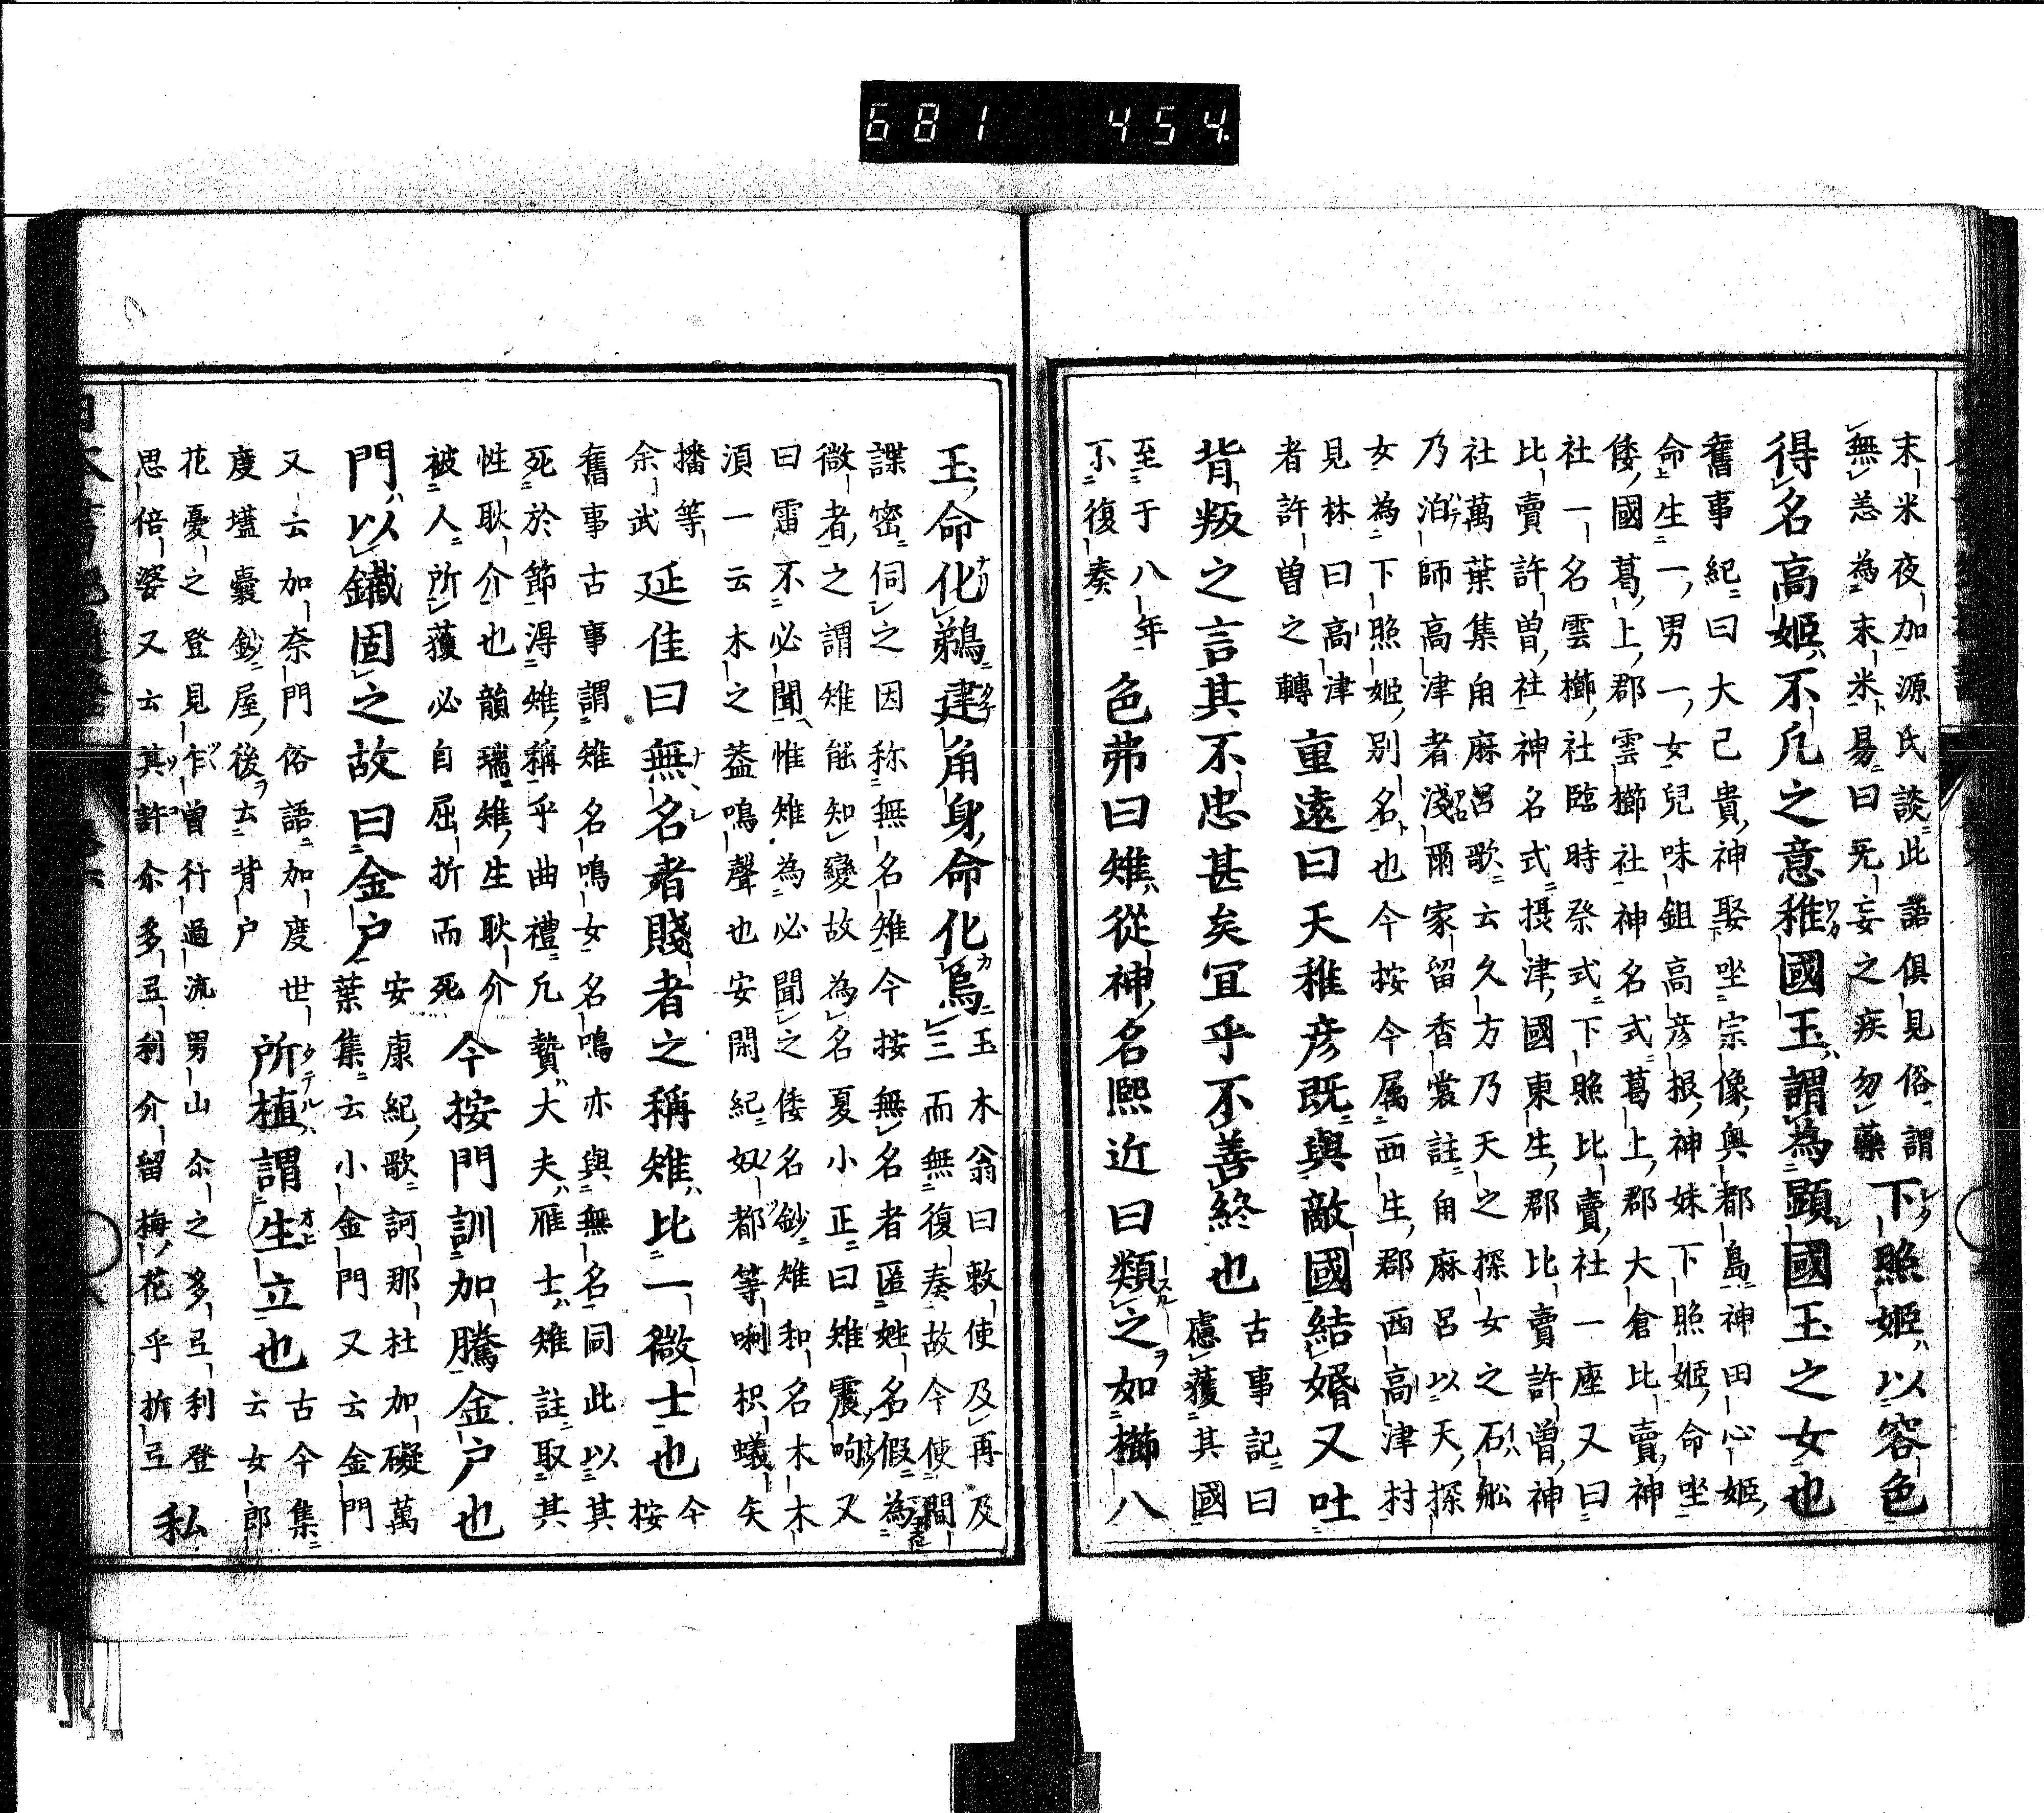 681 454
末米夜加源氏談此語俱見俗謂
無恙為末米易曰旡妄之疾勿藥
下照姬以容色
得名高姬不凡之意稚國玉謂為顕國玉之女也
舊事紀曰大己貴神娶坐宗像奥都島神田心姬
命生一男一女兒味鉏高彦根神妹下照姬命坐
倭國葛上郡雲櫛社神名式葛上郡大倉比賣神
社一名雲櫛社臨時祭式下照比賣社一座又曰
比賣許曽社神名式摂津國東生郡比賣許曽神
社萬葉集角麻呂歌云久方乃天之探女之石舩
乃泊師高津者淺爾家留香裳註角麻呂以天探
女為下照姬別名也今按今属西生郡西高津村
見林曰高津
者許曽之轉
重遠曰天稚彦既與敵國結婚又吐
背叛之言其不忠甚矣冝乎不善終也
古事記曰
慮獲其國
至于八年
不復奏
色弗曰雉從神名熙近曰類之如櫛八
玉命化鵜建角身命化烏
玉木翁曰敕使及再及
三而無復奏故今使間
諜密伺之因称無名雉今按無名者匿姓名假為
微者之謂雉能知變故為名夏小正曰雉震呴又
曰雷不必聞惟雉為必聞之倭名鈔雉和名木木
須一云木之葢鳴聲也安閑紀奴都等唎枳蟻矢
播等
余武
延佳曰無名者賤者之稱雉比一微士也
今
按
舊事古事謂雉名鳴女名鳴亦與無名同此以其
死於節得雉稱乎曲禮凡贄大夫雁士雉註取其
性耿介也韻瑞雉生耿介
被人所獲必自屈折而死
今按門訓加騰金户也
門以鐵固之故曰金户
安康紀歌訶那杜加礙萬
葉集云小金門又云金門
又云加奈門俗語加度世
度壒囊鈔屋後云背户
所植謂生立也
古今集
云女郎
花憂之登見乍曽行過流男山尒之多弖利登
思倍婆又云其許尒多弖利介留梅花乎折弖
私